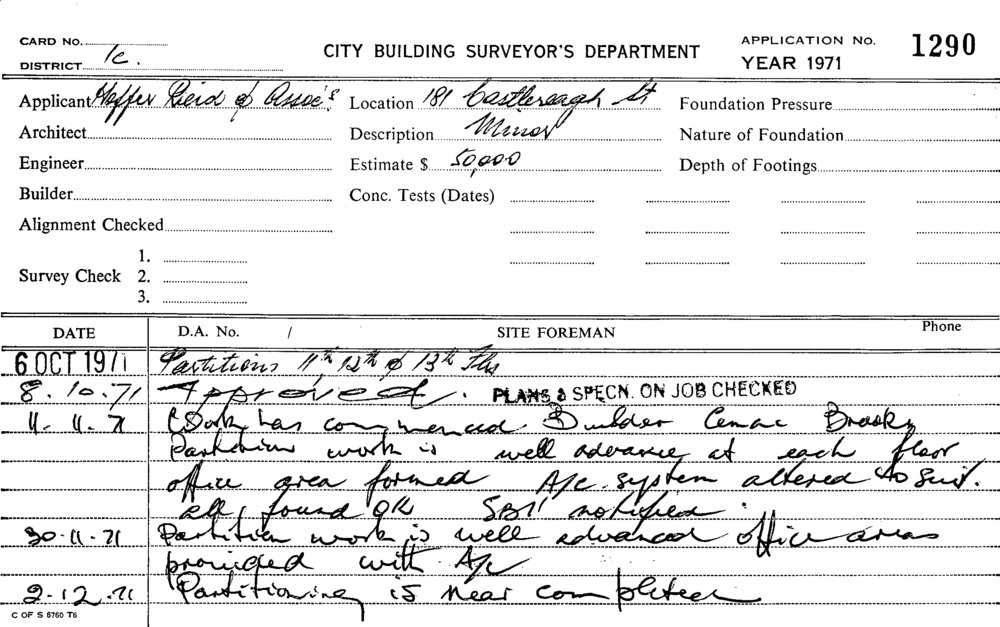 CARD No.
DISTRICT 1c.
CITY BUILDING SURVEYOR'S DEPARTMENT
APPLICATION No. 1290
YEAR 1971
Applicant & Assoc's Location 181 Castlereagh St Foundation Pressure
Architect Description Minor Nature of Foundation
Engineer Estimate $ 50,000 Depth of Footings
Builder Conc. Tests (Dates)
Alignment Checked
1.
Survey Check 2.
3.
DATE D.A. No. / SITE FOREMAN Phone
6 OCT 1971 Partitions 11th, 12th & 13th Flrs
8.10.71 Approved. PLANS & SPECN. ON JOB CHECKED
11.11.71 Work has commenced Builder Brooks
Partition work is well advance at each floor
office area formed A/c system altered to suit.
all found OK notified
30.11.71 Partition work is well advanced office areas
provided with A/c
2.12.71 Partitioning is near completed
C OF S 6760 T6